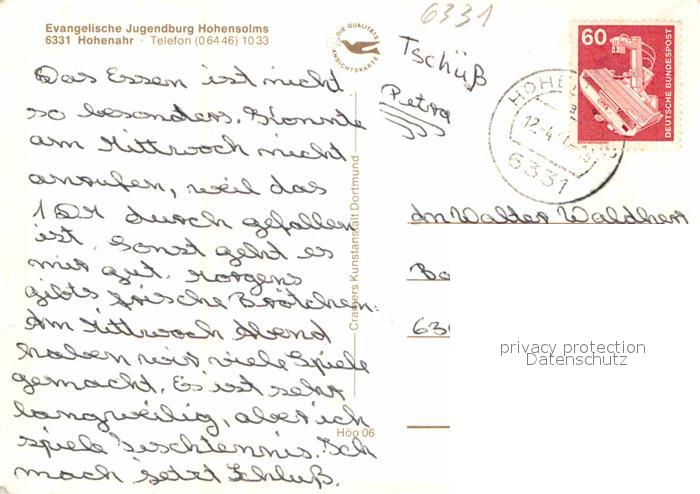 Evangelische Jugendburg Hohensolms
6331 Hohenahr · Telefon (06446) 1033
DIE QUALITÄTS
ANSICHTSKARTE
6331
60
DEUTSCHE BUNDESPOST
6331
Das Essen ist nicht
so besonders. Konnte
am Mittwoch nicht
anrufen, weil das
1 DM durch gefallen
ist. Sonst geht es
mir gut. Morgens
gibts frische Brötchen.
Am Mittwoch Abend
haben wir viele Spiele
gemacht. Es ist sehr
langweilig, aber ich
spiele Tischtennis. Ich
mach jetzt Schluß.
Tschüß
Petra
Cramers Kunstanstalt Dortmund
Höo 06
An Walter Waldhert
privacy protection
Datenschutz